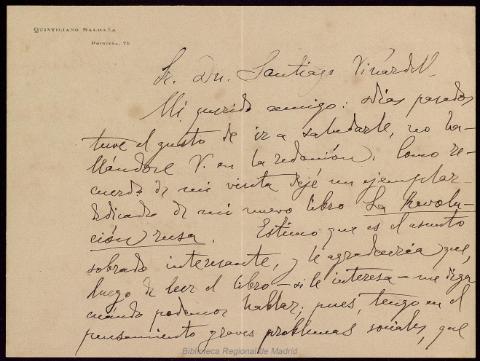 QUINTILIANO SALDAÑA
75
Sr. Dn. Santiago Vinardell
Mi querido amigo: días pasados
tuve el gusto de ir a saludarle, no ha-
llándose V. en la redacción. Como re-
cuerdo de mi visita dejé un ejemplar
dedicado de mi nuevo libro La Revolu-
ción rusa. Estimo que es el asunto
sobrado interesante, y le agradecería que,
luego de leer el libro – si le interesa – me diga
cuándo podemos hablar; pues, tengo en el
pensamiento graves problemas sociales, que
Biblioteca Regional de Madrid